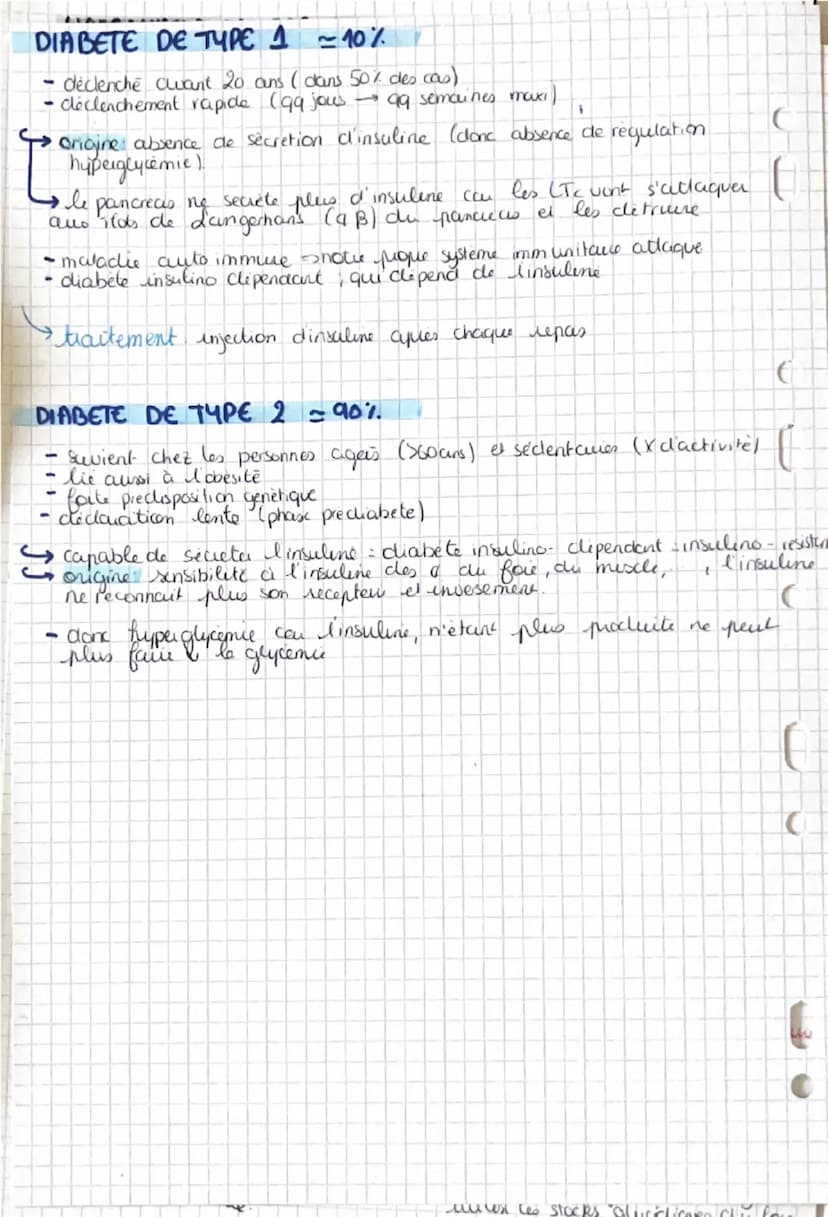 DIABETE DE TYPE 1 ≃ 10%
- déclenché avant 20 ans (dans 50% des cas)
- déclenchement rapide (qq jours → qq semaines maxi)
↳ origine: absence de sécretion d'insuline (donc absence de régulation
hyperglycémie).
↳ le pancreas ne secrète plus d'insuline car les LTc vont s'attaquer
aux ilots de Langerhans (¢ β) du pancreas et les détruire
- maladie auto immune → notre propre système immunitaire attaque
- diabète insulino dépendant : qui dépend de l'insuline
↳ traitement injection d'insuline après chaque repas
DIABETE DE TYPE 2 ≃ 90%
- survient chez les personnes agées (>60ans) et sédentaires (X d'activité)
- lié aussi à l'obésité
- forte predisposition génétique
- déclaration lente (phase prediabete)
↳ capable de sécréter l'insuline = diabète insulino-dépendant : insulino-résistan
↳ origine: sensibilité à l'insuline des ¢ du foie, du muscle, , l'insuline
ne reconnait plus son recepteur et inversement.
- donc hyperglycémie car l'insuline, n'étant plus produite ne peut
plus faire ↓ la glycémie
mieux les stocks